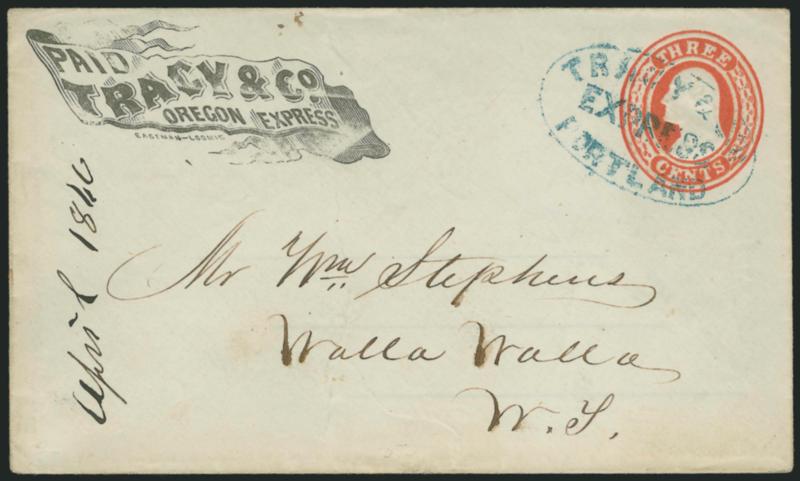 PAID
TRACY & Co.
OREGON EXPRESS
EASTMAN-LOOMIS
THREE
CENTS
TRACY & Co's
EXPRESS
PORTLAND
April 1860
Mr Wm. Stephens
Walla Walla
W.T.